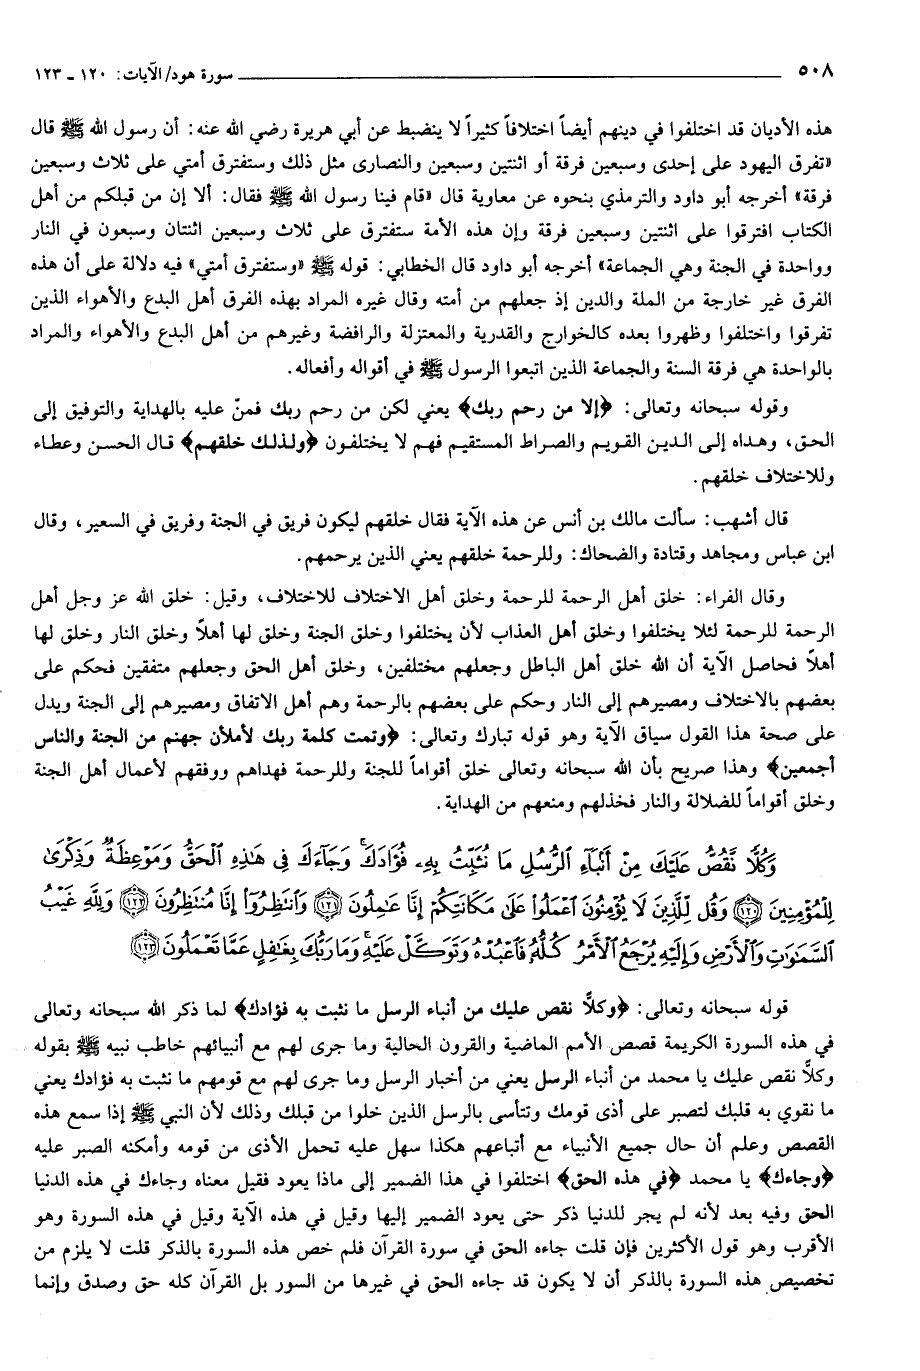 ٥٠٨ سورة هود/ الآيات: ١٢٠ ـ ١٢٣
هذه الأديان قد اختلفوا في دينهم أيضاً اختلافاً كثيراً لا ينضبط عن أبي هريرة رضي الله عنه: أن رسول الله ﷺ قال
«تفرق اليهود على إحدى وسبعين فرقة أو اثنتين وسبعين والنصارى مثل ذلك وستفترق أمتي على ثلاث وسبعين
فرقة» أخرجه أبو داود والترمذي بنحوه عن معاوية قال «قام فينا رسول الله ﷺ فقال: ألا إن من قبلكم من أهل
الكتاب افترقوا على اثنتين وسبعين فرقة وإن هذه الأمة ستفترق على ثلاث وسبعين اثنتان وسبعون في النار
وواحدة في الجنة وهي الجماعة» أخرجه أبو داود قال الخطابي: قوله ﷺ «وستفترق أمتي» فيه دلالة على أن هذه
الفرق غير خارجة من الملة والدين إذ جعلهم من أمته وقال غيره المراد بهذه الفرق أهل البدع والأهواء الذين
تفرقوا واختلفوا وظهروا بعده كالخوارج والقدرية والمعتزلة والرافضة وغيرهم من أهل البدع والأهواء والمراد
بالواحدة هي فرقة السنة والجماعة الذين اتبعوا الرسول ﷺ في أقواله وأفعاله.
وقوله سبحانه وتعالى: ﴿إلا من رحم ربك﴾ يعني لكن من رحم ربك فمنّ عليه بالهداية والتوفيق إلى
الحق، وهداه إلى الدين القويم والصراط المستقيم فهم لا يختلفون ﴿ولذلك خلقهم﴾ قال الحسن وعطاء
وللاختلاف خلقهم.
قال أشهب: سألت مالك بن أنس عن هذه الآية فقال خلقهم ليكون فريق في الجنة وفريق في السعير، وقال
ابن عباس ومجاهد وقتادة والضحاك: وللرحمة خلقهم يعني الذين يرحمهم.
وقال الفراء: خلق أهل الرحمة للرحمة وخلق أهل الاختلاف للاختلاف، وقيل: خلق الله عز وجل أهل
الرحمة للرحمة لئلا يختلفوا وخلق أهل العذاب لأن يختلفوا وخلق الجنة وخلق لها أهلاً وخلق النار وخلق لها
أهلاً فحاصل الآية أن الله خلق أهل الباطل وجعلهم مختلفين، وخلق أهل الحق وجعلهم متفقين فحكم على
بعضهم بالاختلاف ومصيرهم إلى النار وحكم على بعضهم بالرحمة وهم أهل الاتفاق ومصيرهم إلى الجنة ويدل
على صحة هذا القول سياق الآية وهو قوله تبارك وتعالى: ﴿وتمت كلمة ربك لأملأن جهنم من الجنة والناس
أجمعين﴾ وهذا صريح بأن الله سبحانه وتعالى خلق أقواماً للجنة وللرحمة فهداهم ووفقهم لأعمال أهل الجنة
وخلق أقواماً للضلالة والنار فخذلهم ومنعهم من الهداية.
وَكُلًّا نَّقُصُّ عَلَيْكَ مِنْ أَنبَآءِ ٱلرُّسُلِ مَا نُثَبِّتُ بِهِۦ فُؤَادَكَ ۚ وَجَآءَكَ فِى هَـٰذِهِ ٱلْحَقُّ وَمَوْعِظَةٌ وَذِكْرَىٰ
لِلْمُؤْمِنِينَ ﴿١٢٠﴾ وَقُل لِّلَّذِينَ لَا يُؤْمِنُونَ ٱعْمَلُوا۟ عَلَىٰ مَكَانَتِكُمْ إِنَّا عَـٰمِلُونَ ﴿١٢١﴾ وَٱنتَظِرُوٓا۟ إِنَّا مُنتَظِرُونَ ﴿١٢٢﴾ وَلِلَّهِ غَيْبُ
ٱلسَّمَـٰوَٰتِ وَٱلْأَرْضِ وَإِلَيْهِ يُرْجَعُ ٱلْأَمْرُ كُلُّهُۥ فَٱعْبُدْهُ وَتَوَكَّلْ عَلَيْهِ ۚ وَمَا رَبُّكَ بِغَـٰفِلٍ عَمَّا تَعْمَلُونَ ﴿١٢٣﴾
قوله سبحانه وتعالى: ﴿وكلًّا نقص عليك من أنباء الرسل ما نثبت به فؤادك﴾ لما ذكر الله سبحانه وتعالى
في هذه السورة الكريمة قصص الأمم الماضية والقرون الحالية وما جرى لهم مع أنبيائهم خاطب نبيه ﷺ بقوله
وكلاًّ نقص عليك يا محمد من أنباء الرسل يعني من أخبار الرسل وما جرى لهم مع قومهم ما نثبت به فؤادك يعني
ما نقوي به قلبك لتصبر على أذى قومك وتتأسى بالرسل الذين خلوا من قبلك وذلك لأن النبي ﷺ إذا سمع هذه
القصص وعلم أن حال جميع الأنبياء مع أتباعهم هكذا سهل عليه تحمل الأذى من قومه وأمكنه الصبر عليه
﴿وجاءك﴾ يا محمد ﴿في هذه الحق﴾ اختلفوا في هذا الضمير إلى ماذا يعود فقيل معناه وجاءك في هذه الدنيا
الحق وفيه بعد لأنه لم يجر للدنيا ذكر حتى يعود الضمير إليها وقيل في هذه الآية وقيل في هذه السورة وهو
الأقرب وهو قول الأكثرين فإن قلت جاءه الحق في سورة القرآن فلم خص هذه السورة بالذكر قلت لا يلزم من
تخصيص هذه السورة بالذكر أن لا يكون قد جاءه الحق في غيرها من السور بل القرآن كله حق وصدق وإنما